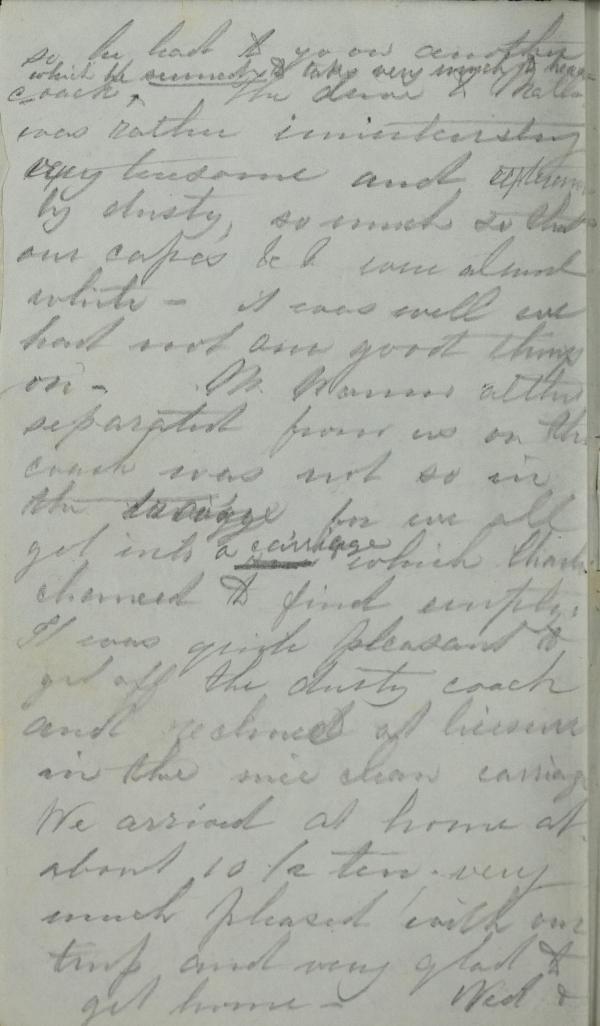 so he had to go on another
which he seemed to take very much to heart
coach. The drive to
was rather uninteresting
very tiresome and extreme-
ly dusty, so much so that
our capes &c & were almost
white - it was well we
had not our good things
on - Mr. altho
separated from us on the
coach was not so in
the for we all
got into a carriage which
chanced to find empty.
It was quite pleasant to
get off the dusty coach
and reclined at liesure
in the nice clean carriage
We arrived at home at
about 10 1/2 ten. very
much pleased with our
trip and very glad to
get home - Wed